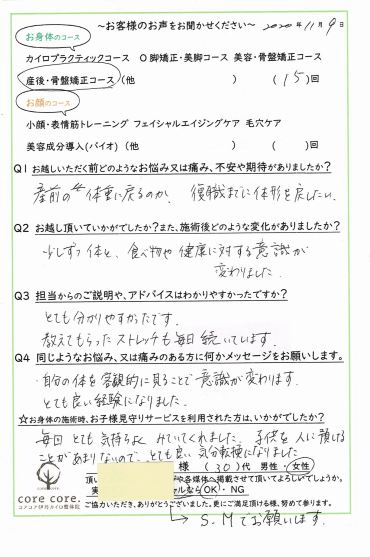 ～お客様のお声をお聞かせください～ 2020年11月9日
お身体のコース
カイロプラクティックコース O脚矯正・美脚コース 美容・骨盤矯正コース
産後・骨盤矯正コース (他 ) (15)回
お顔のコース
小顔・表情筋トレーニング フェイシャルエイジングケア 毛穴ケア
美容成分導入(バイオ) (他 ) ( )回
Q1 お越しいただく前どのようなお悩み又は痛み、不安や期待がありましたか?
産前の体重に戻るのか、 復職までに体形を戻したい。
Q2 お越し頂いていかがでしたか?また、施術後どのような変化がありましたか?
少しずつ体と、食べ物や健康に対する意識が
変わりました。
Q3 担当からのご説明や、アドバイスはわかりやすかったですか?
とても分かりやすかったです。
教えてもらったストレッチも毎日続いています。
Q4 同じようなお悩み、又は痛みのある方に何かメッセージをお願いします。
・自分の体を客観的に見ることで意識が変わります。
とても良い経験になりました。
☆お身体の施術時、お子様見守りサービスを利用された方は、いかがでしたか?
毎回とても気持ちよくみていてくれました。子供を人に預ける
ことがあまりないので、とても良い気分転換になりました。
様 (30)代 男性・女性
頂い や各媒体へ掲載させて頂いてよろしいでしょうか。
実 ャルなら OK・NG
ご協力いただき、ありがとうございました。更にご満足頂ける様、努めて参ります。
core core.
コアコア伊丹カイロ整体院
S.Mでお願いします。